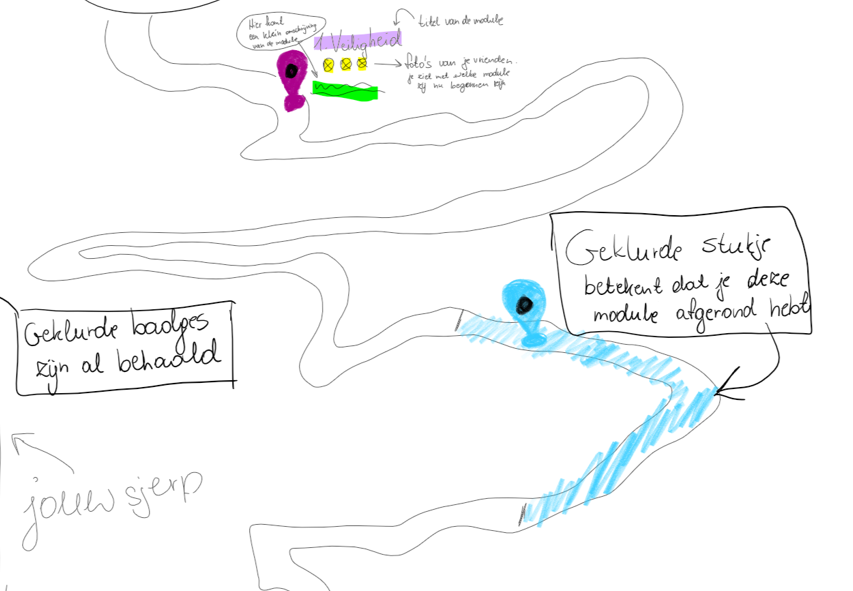 Hier komt
een klein omschrijving
van de module
titel van de module
1. Veiligheid
foto's van je vrienden.
je ziet met welke module
zij nu begonnen zijn
Geklurde stukje
betekent dat je deze
module afgerond hebt
Geklurde badges
zijn al behaald
jouw sjerp